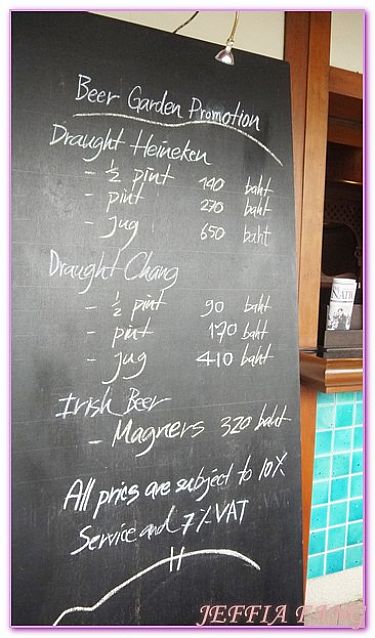 Beer Garden Promotion
Draught Heineken
- ½ pint 140 baht
- pint 270 baht
- jug 650 baht
Draught Chang
- ½ pint 90 baht
- pint 170 baht
- jug 410 baht
Irish Beer
- Magners 320 baht
All prices are subject to 10%
Service and 7% VAT
JEFFIA FANG